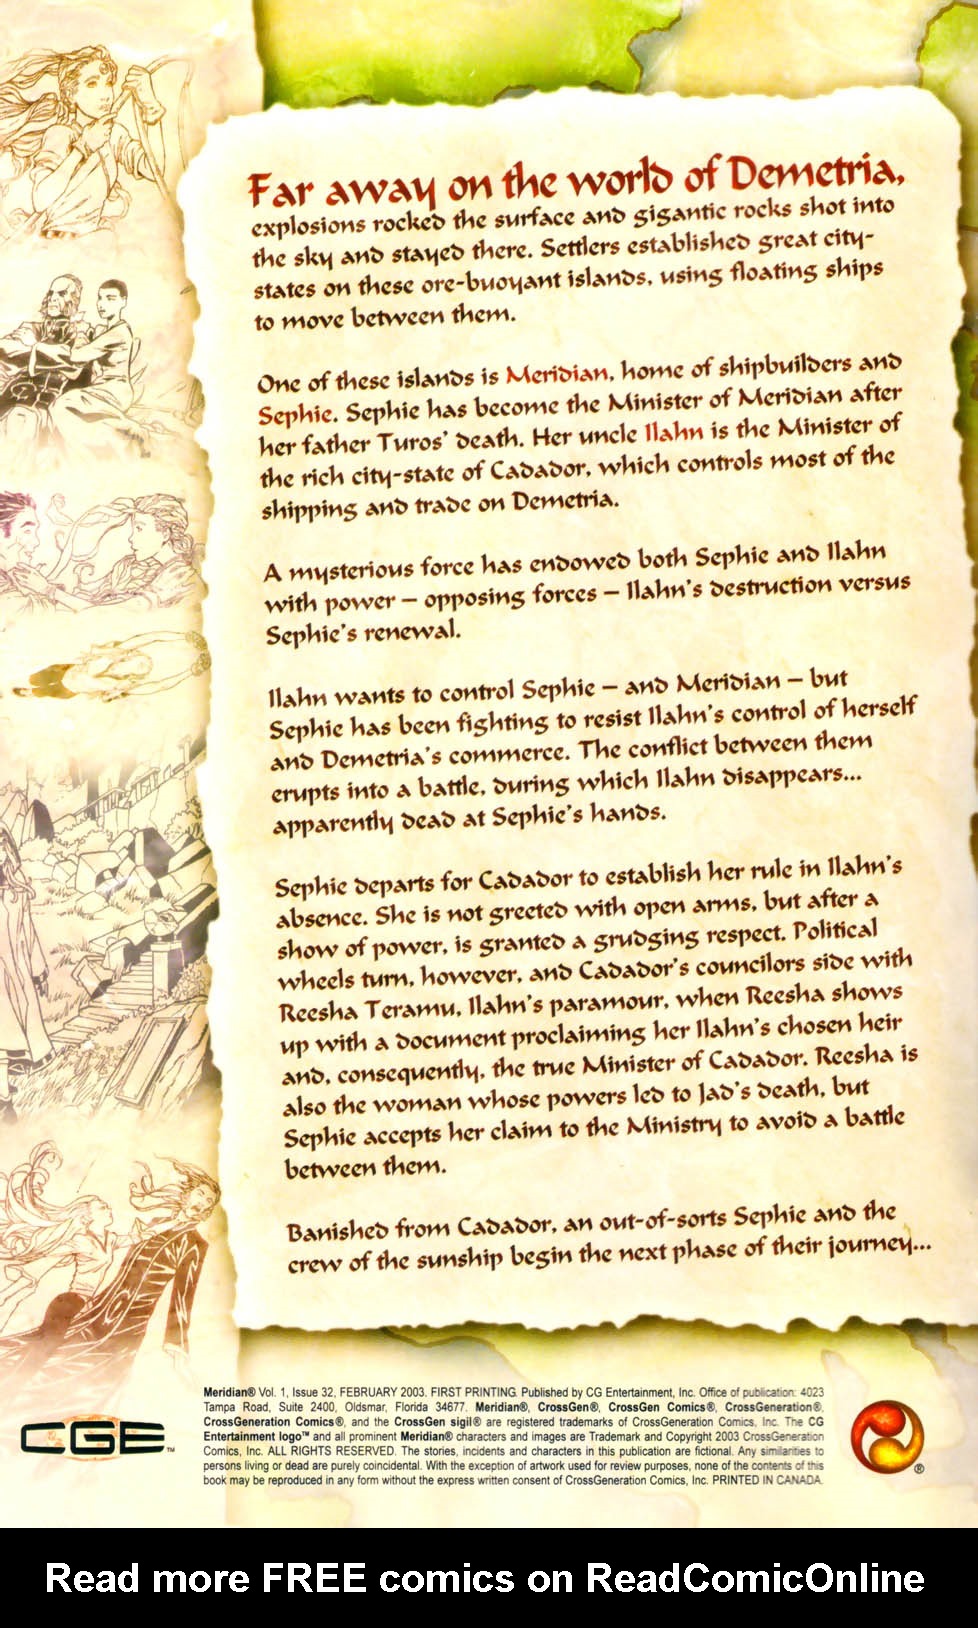 Far away on the world of Demetria,
explosions rocked the surface and gigantic rocks shot into
the sky and stayed there. Settlers established great city-
states on these ore-buoyant islands, using floating ships
to move between them.
One of these islands is Meridian, home of shipbuilders and
Sephie. Sephie has become the Minister of Meridian after
her father Turos' death. Her uncle Ilahn is the Minister of
the rich city-state of Cadador, which controls most of the
shipping and trade on Demetria.
A mysterious force has endowed both Sephie and Ilahn
with power – opposing forces – Ilahn's destruction versus
Sephie's renewal.
Ilahn wants to control Sephie – and Meridian – but
Sephie has been fighting to resist Ilahn's control of herself
and Demetria's commerce. The conflict between them
erupts into a battle, during which Ilahn disappears...
apparently dead at Sephie's hands.
Sephie departs for Cadador to establish her rule in Ilahn's
absence. She is not greeted with open arms, but after a
show of power, is granted a grudging respect. Political
wheels turn, however, and Cadador's councilors side with
Reesha Teramu, Ilahn's paramour, when Reesha shows
up with a document proclaiming her Ilahn's chosen heir
and, consequently, the true Minister of Cadador. Reesha is
also the woman whose powers led to Jad's death, but
Sephie accepts her claim to the Ministry to avoid a battle
between them.
Banished from Cadador, an out-of-sorts Sephie and the
crew of the sunship begin the next phase of their journey...
Meridian® Vol. 1, Issue 32, FEBRUARY 2003. FIRST PRINTING. Published by CG Entertainment, Inc. Office of publication: 4023
Tampa Road, Suite 2400, Oldsmar, Florida 34677. Meridian®, CrossGen®, CrossGen Comics®, CrossGeneration®,
CrossGeneration Comics®, and the CrossGen sigil® are registered trademarks of CrossGeneration Comics, Inc. The CG
Entertainment logo™ and all prominent Meridian® characters and images are Trademark and Copyright 2003 CrossGeneration
Comics, Inc. ALL RIGHTS RESERVED. The stories, incidents and characters in this publication are fictional. Any similarities to
persons living or dead are purely coincidental. With the exception of artwork used for review purposes, none of the contents of this
book may be reproduced in any form without the express written consent of CrossGeneration Comics, Inc. PRINTED IN CANADA.
CGE™
®
Read more FREE comics on ReadComicOnline